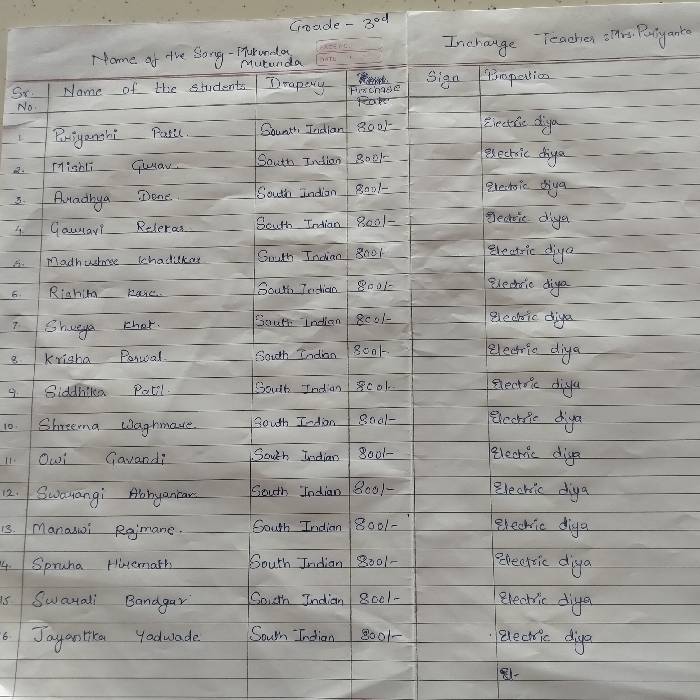 Grade - 3rd
Name of the Song - Mukunda Mukunda
Incharge Teacher : Mrs. Priyanka
Sr. No. Name of the students Drapery Purchase Rate Sign Properties
1. Priyanshi Patil. South Indian 800/- Electric diya
2. Mishti Gurav South Indian 800/- Electric diya
3. Aradhya Done South Indian 800/- Electric diya
4. Gauravi Relekar South Indian 800/- Electric diya
5. Madhushree Khadilkar South Indian 800/- Electric diya
6. South Indian 800/- Electric diya
7. Shreya Khot. South Indian 800/- Electric diya
8. Krisha Porwal. South Indian 800/- Electric diya
9. Siddhika Patil. South Indian 800/- Electric diya
10. Waghmare. South Indian 800/- Electric diya
11. Owi Gavandi South Indian 800/- Electric diya
12. Swarangi Abhyankar South Indian 800/- Electric diya
13. Manaswi Rajmane. South Indian 800/- Electric diya
4. Spruha Hiremath South Indian 800/- Electric diya
15 Swarali Bandgar South Indian 800/- Electric diya
6. Jayantika Yadwade South Indian 800/- Electric diya